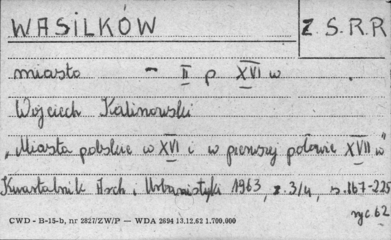 WASILKÓW
Z.S.R.R
miasto - II p XVI w.
Wojciech Kalinowski
„Miasta polskie w XVI i w pierwszej połowie XVII w"
Kwartalnik Arch i Urbanistyki 1963, z. 3/4, s. 167-225
ryc. 62
CWD - B-15-b, nr 2827/ZW/P — WDA 2694 13.12.62 1.700.000